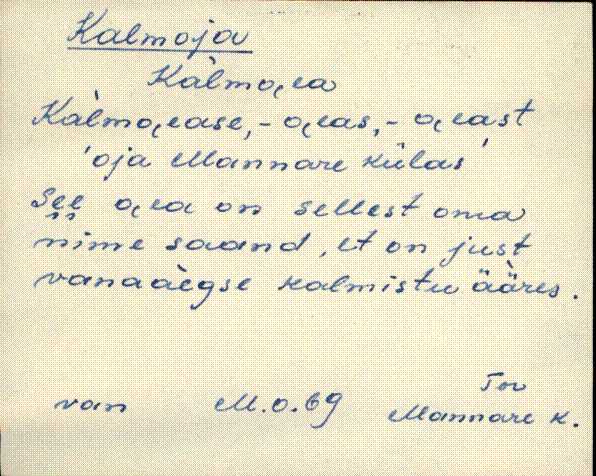 Kalmoja
Kàlmoɩ̯ea
Kàlmoɩ̯ease, -oɩ̯eas, -oɩ̯east
'oja Mannare külas'
See oɩ̯ea on sellest oma
nime saand, et on just
vanaàegse kalmistu ä̀äres.
Tor
van M.o.69 Mannare k.